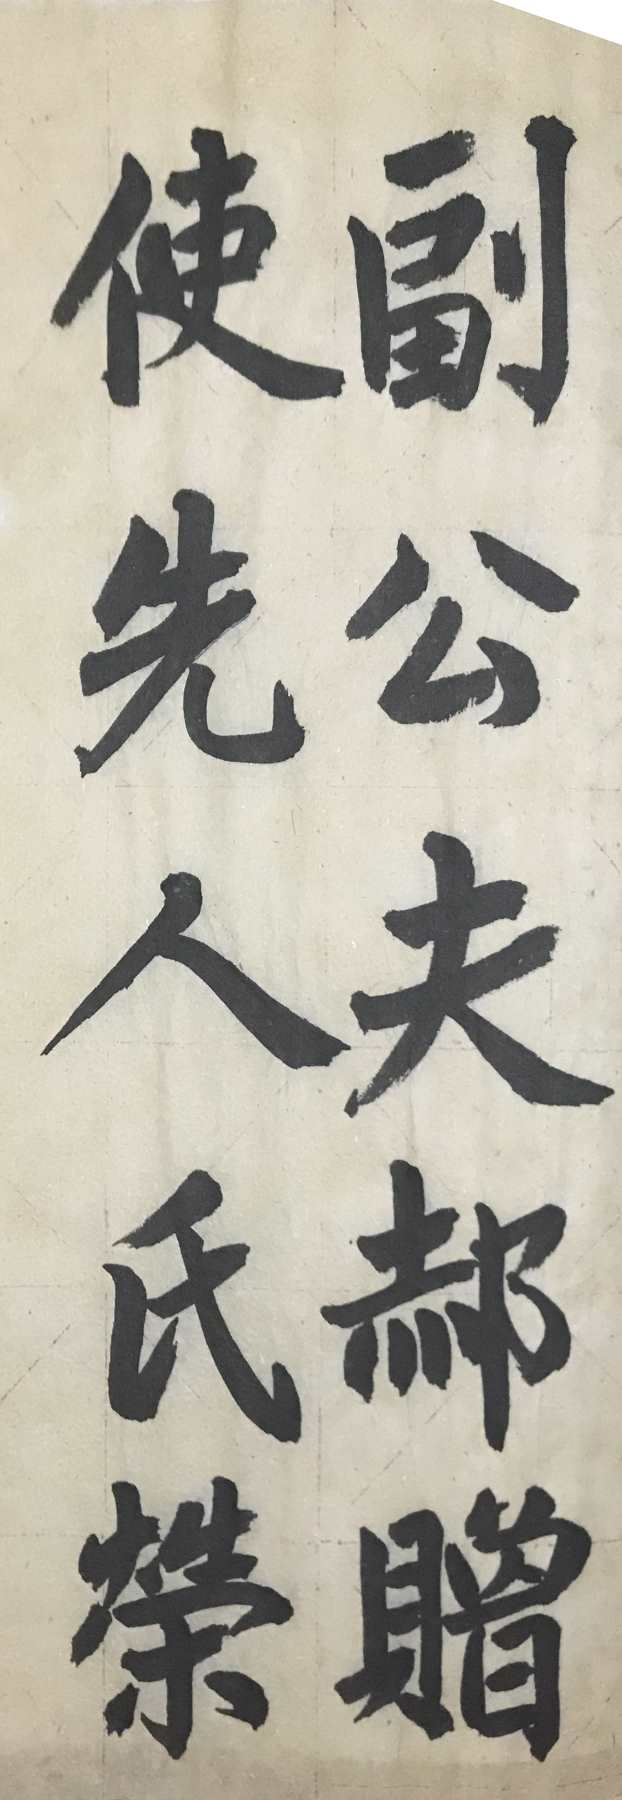 副公夫郝贈
使先人氏榮